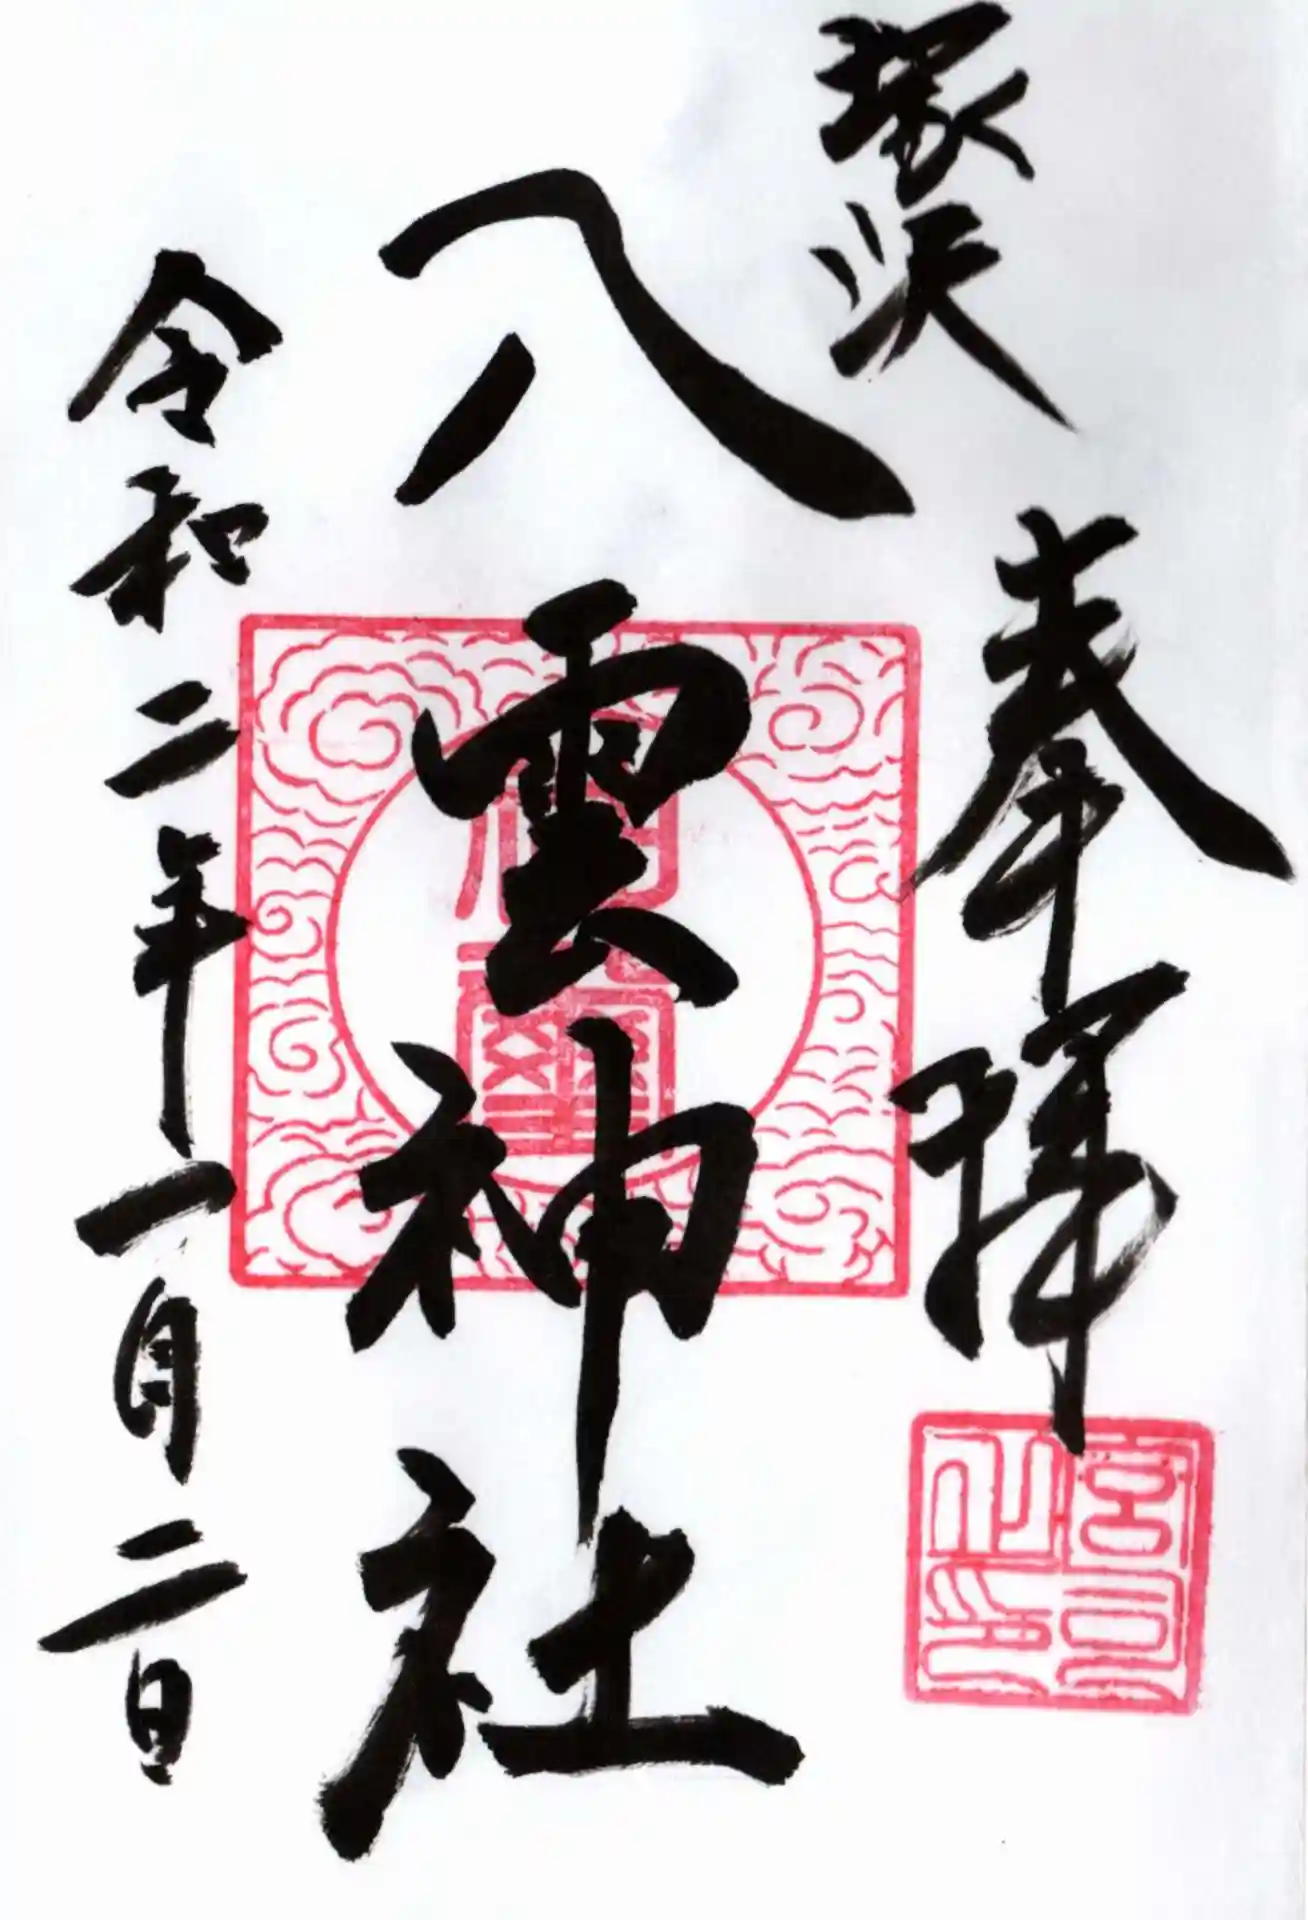 塚沢
奉拝
八雲神社
令和二年一月二日
宮司
之印